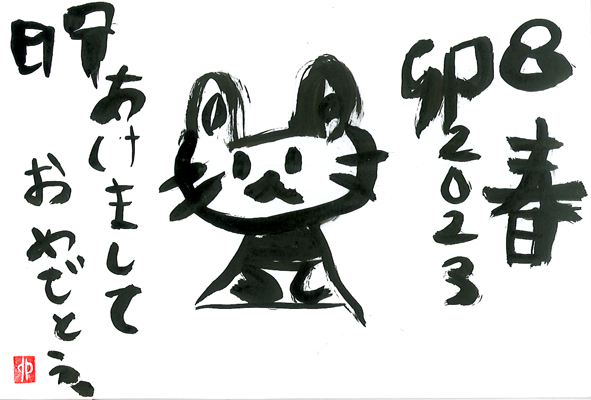 8春
卯2023
明
あけまして
おめでとう。